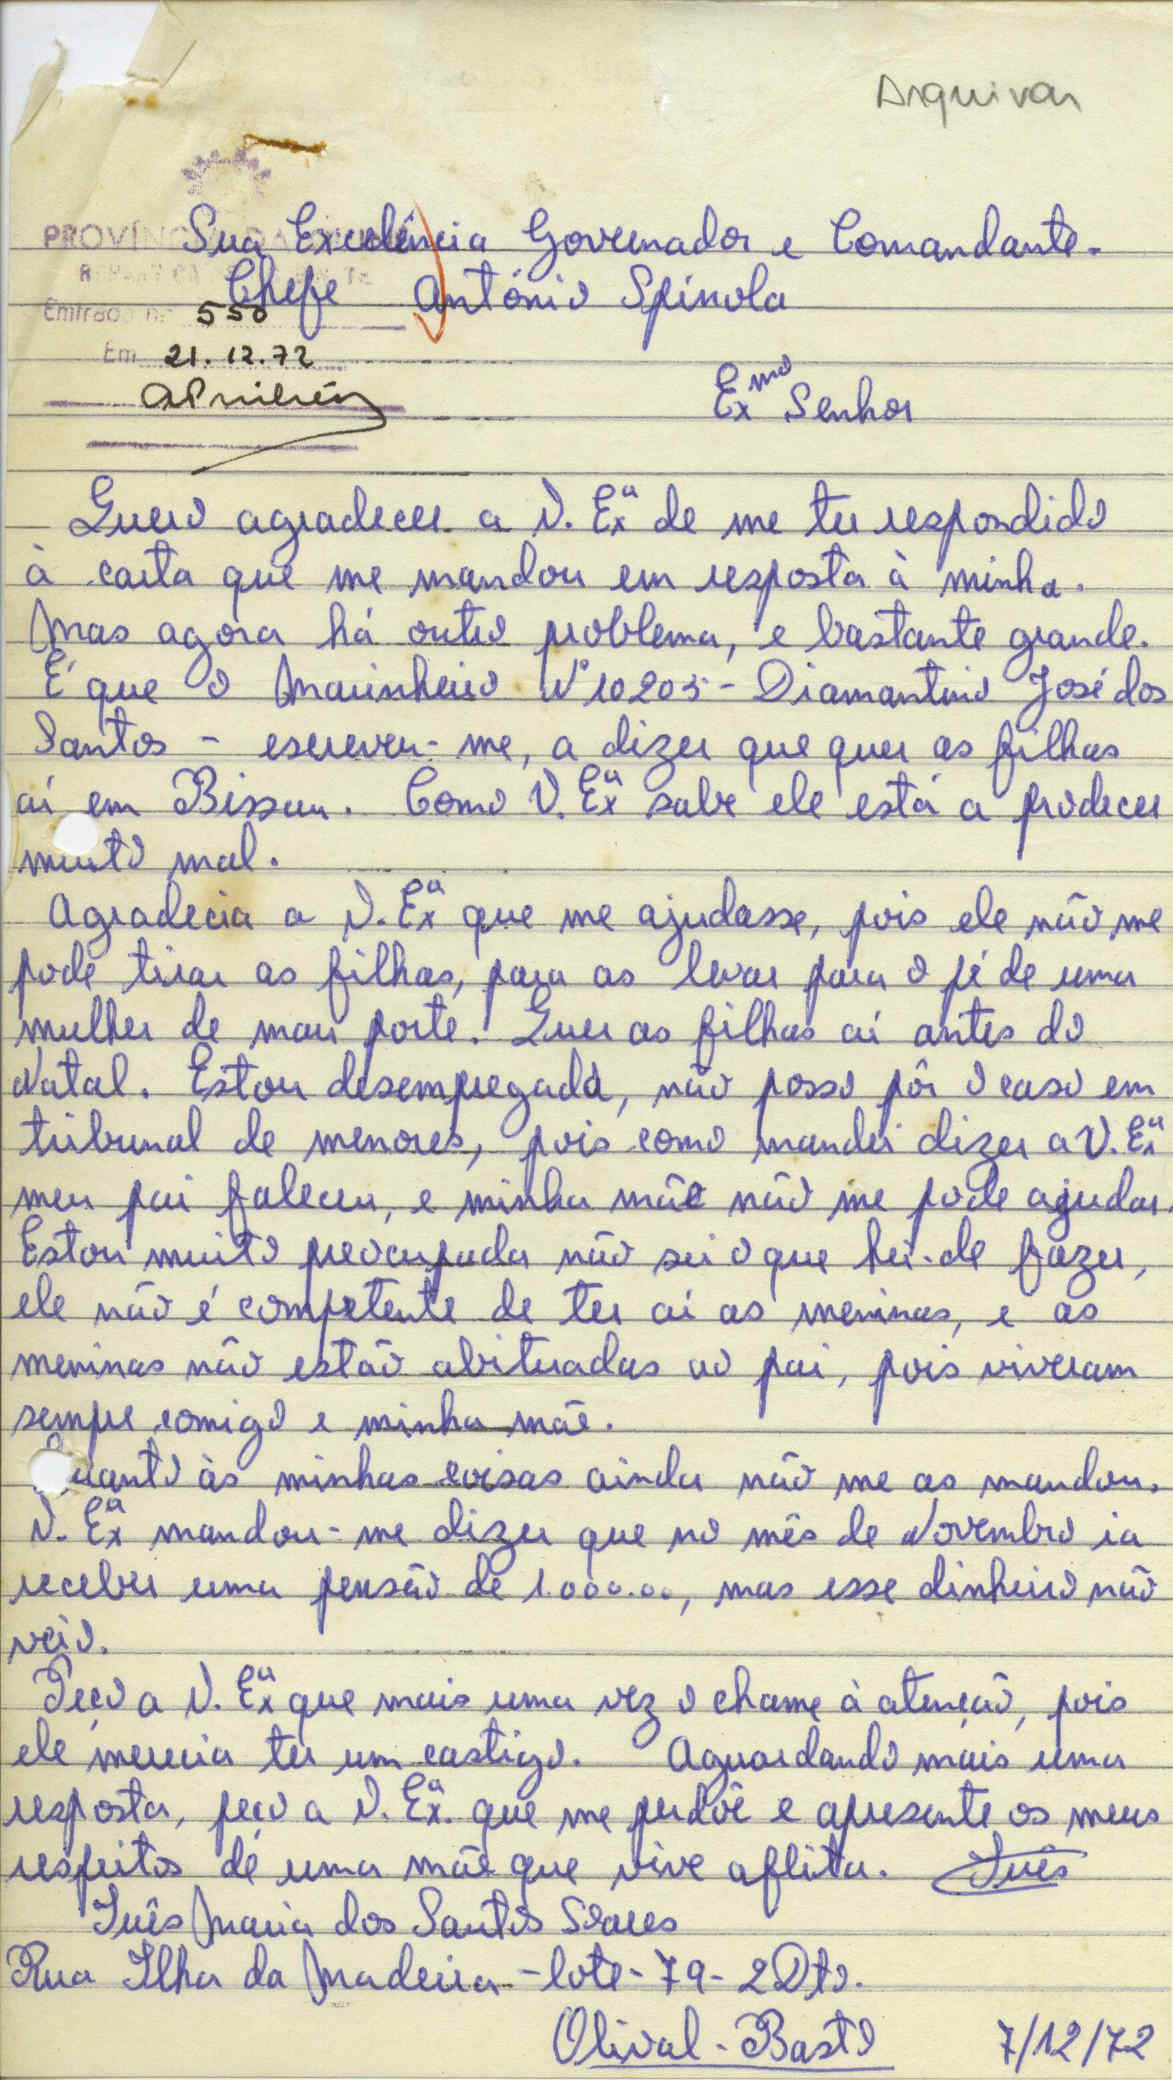 Arquivar
PROVÍNCIA DA
Sua Excelência Governador e Comandante-
Chefe António Spínola
Entrada n.º 550
Em 21.12.72
Exmo Senhor
Quero agradecer a V. Exª de me ter respondido
à carta que me mandou em resposta à minha.
Mas agora há outro problema, e bastante grande.
É que o Marinheiro Nº 10205 - Diamantino José dos
Santos - escreveu-me, a dizer que quer as filhas
aí em Bissau. Como V. Exª sabe ele está a prodecer
muito mal.
Agradecia a V. Exª que me ajudasse, pois ele não me
pode tirar as filhas, para as levar para o pé de uma
mulher de mau porte. Quer as filhas aí antes do
Natal. Estou desempregada, não posso pôr o caso em
tribunal de menores, pois como mandei dizer a V. Exª
meu pai faleceu, e minha mãe não me pode ajudar.
Estou muito preocupada não sei o que hei-de fazer,
ele não é competente de ter aí as meninas, e as
meninas não estão abituadas ao pai, pois viveram
sempre comigo e minha mãe.
Quanto às minhas coisas ainda não me as mandou.
V. Exª mandou-me dizer que no mês de Novembro ia
receber uma pensão de 1.000.00, mas esse dinheiro não
veio.
Peço a V. Exª que mais uma vez o chame à atenção, pois
ele merecia ter um castigo. Aguardando mais uma
resposta, peço a V. Exª. que me perdôe e apresente os meus
respeitos de uma mãe que vive aflita. Inês
Inês Maria dos Santos Soares
Rua Ilha da Madeira - lote - 79 - 2 Dto.
Olival-Basto 7/12/72